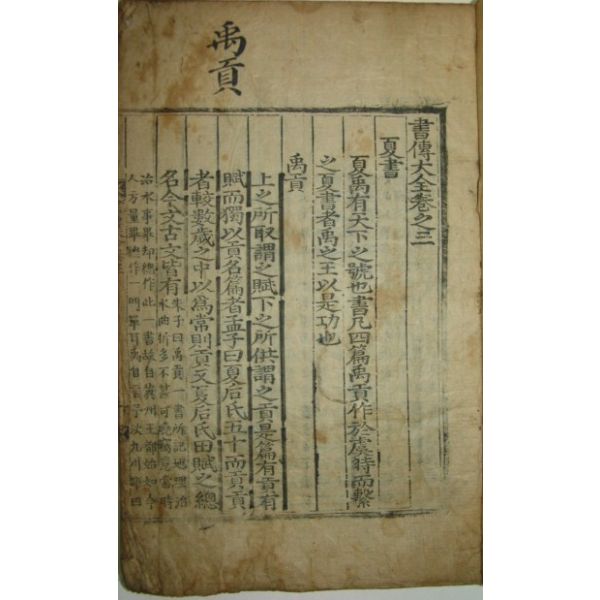 禹貢
書傳大全卷之三
夏書
夏禹有天下之號也書凡四篇禹貢作於虞時而繫
之夏書者禹之王以是功也
禹貢
上之所取謂之賦下之所供謂之貢是篇有貢有
賦而獨以貢名篇者孟子曰夏后氏五十而貢貢
者較數歲之中以爲常則貢又夏后氏田賦之總
名今文古文皆有
朱子曰禹貢一書所記地理治
水曲折多不甚可曉竊意當時
治水事畢却總作此一書故自冀州王都始如今
人方量畢總作一門單耳禹自言予決九川